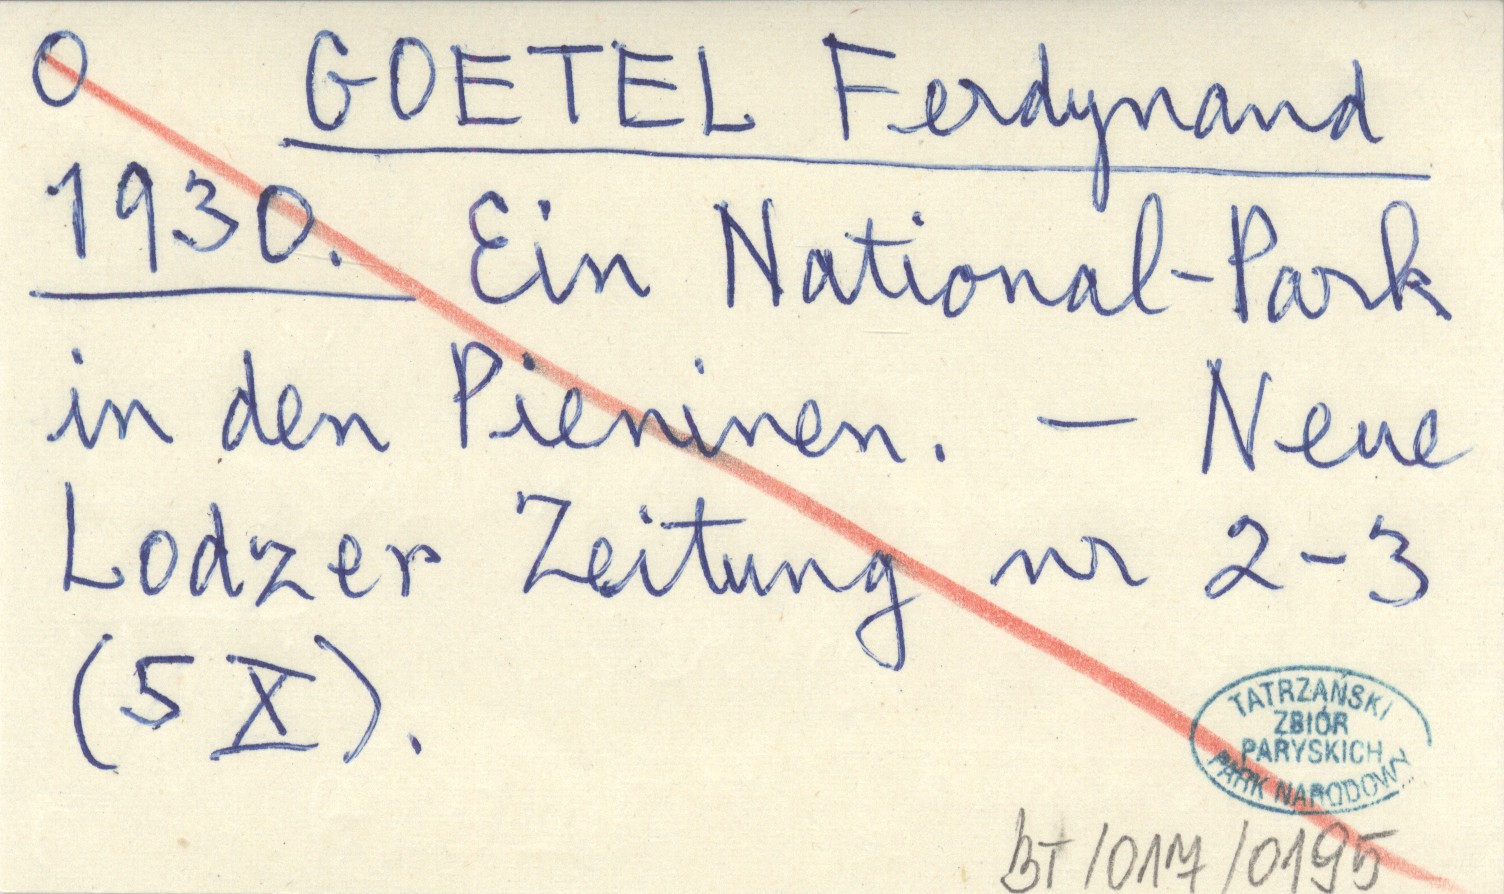 O GOETEL Ferdynand
1930. Ein National-Park
in den Pieninen. — Neue
Lodzer Zeitung nr 2-3
(5 X).
TATRZAŃSKI
ZBIÓR
PARYSKICH
PARK NARODOWY
BT/017/0195